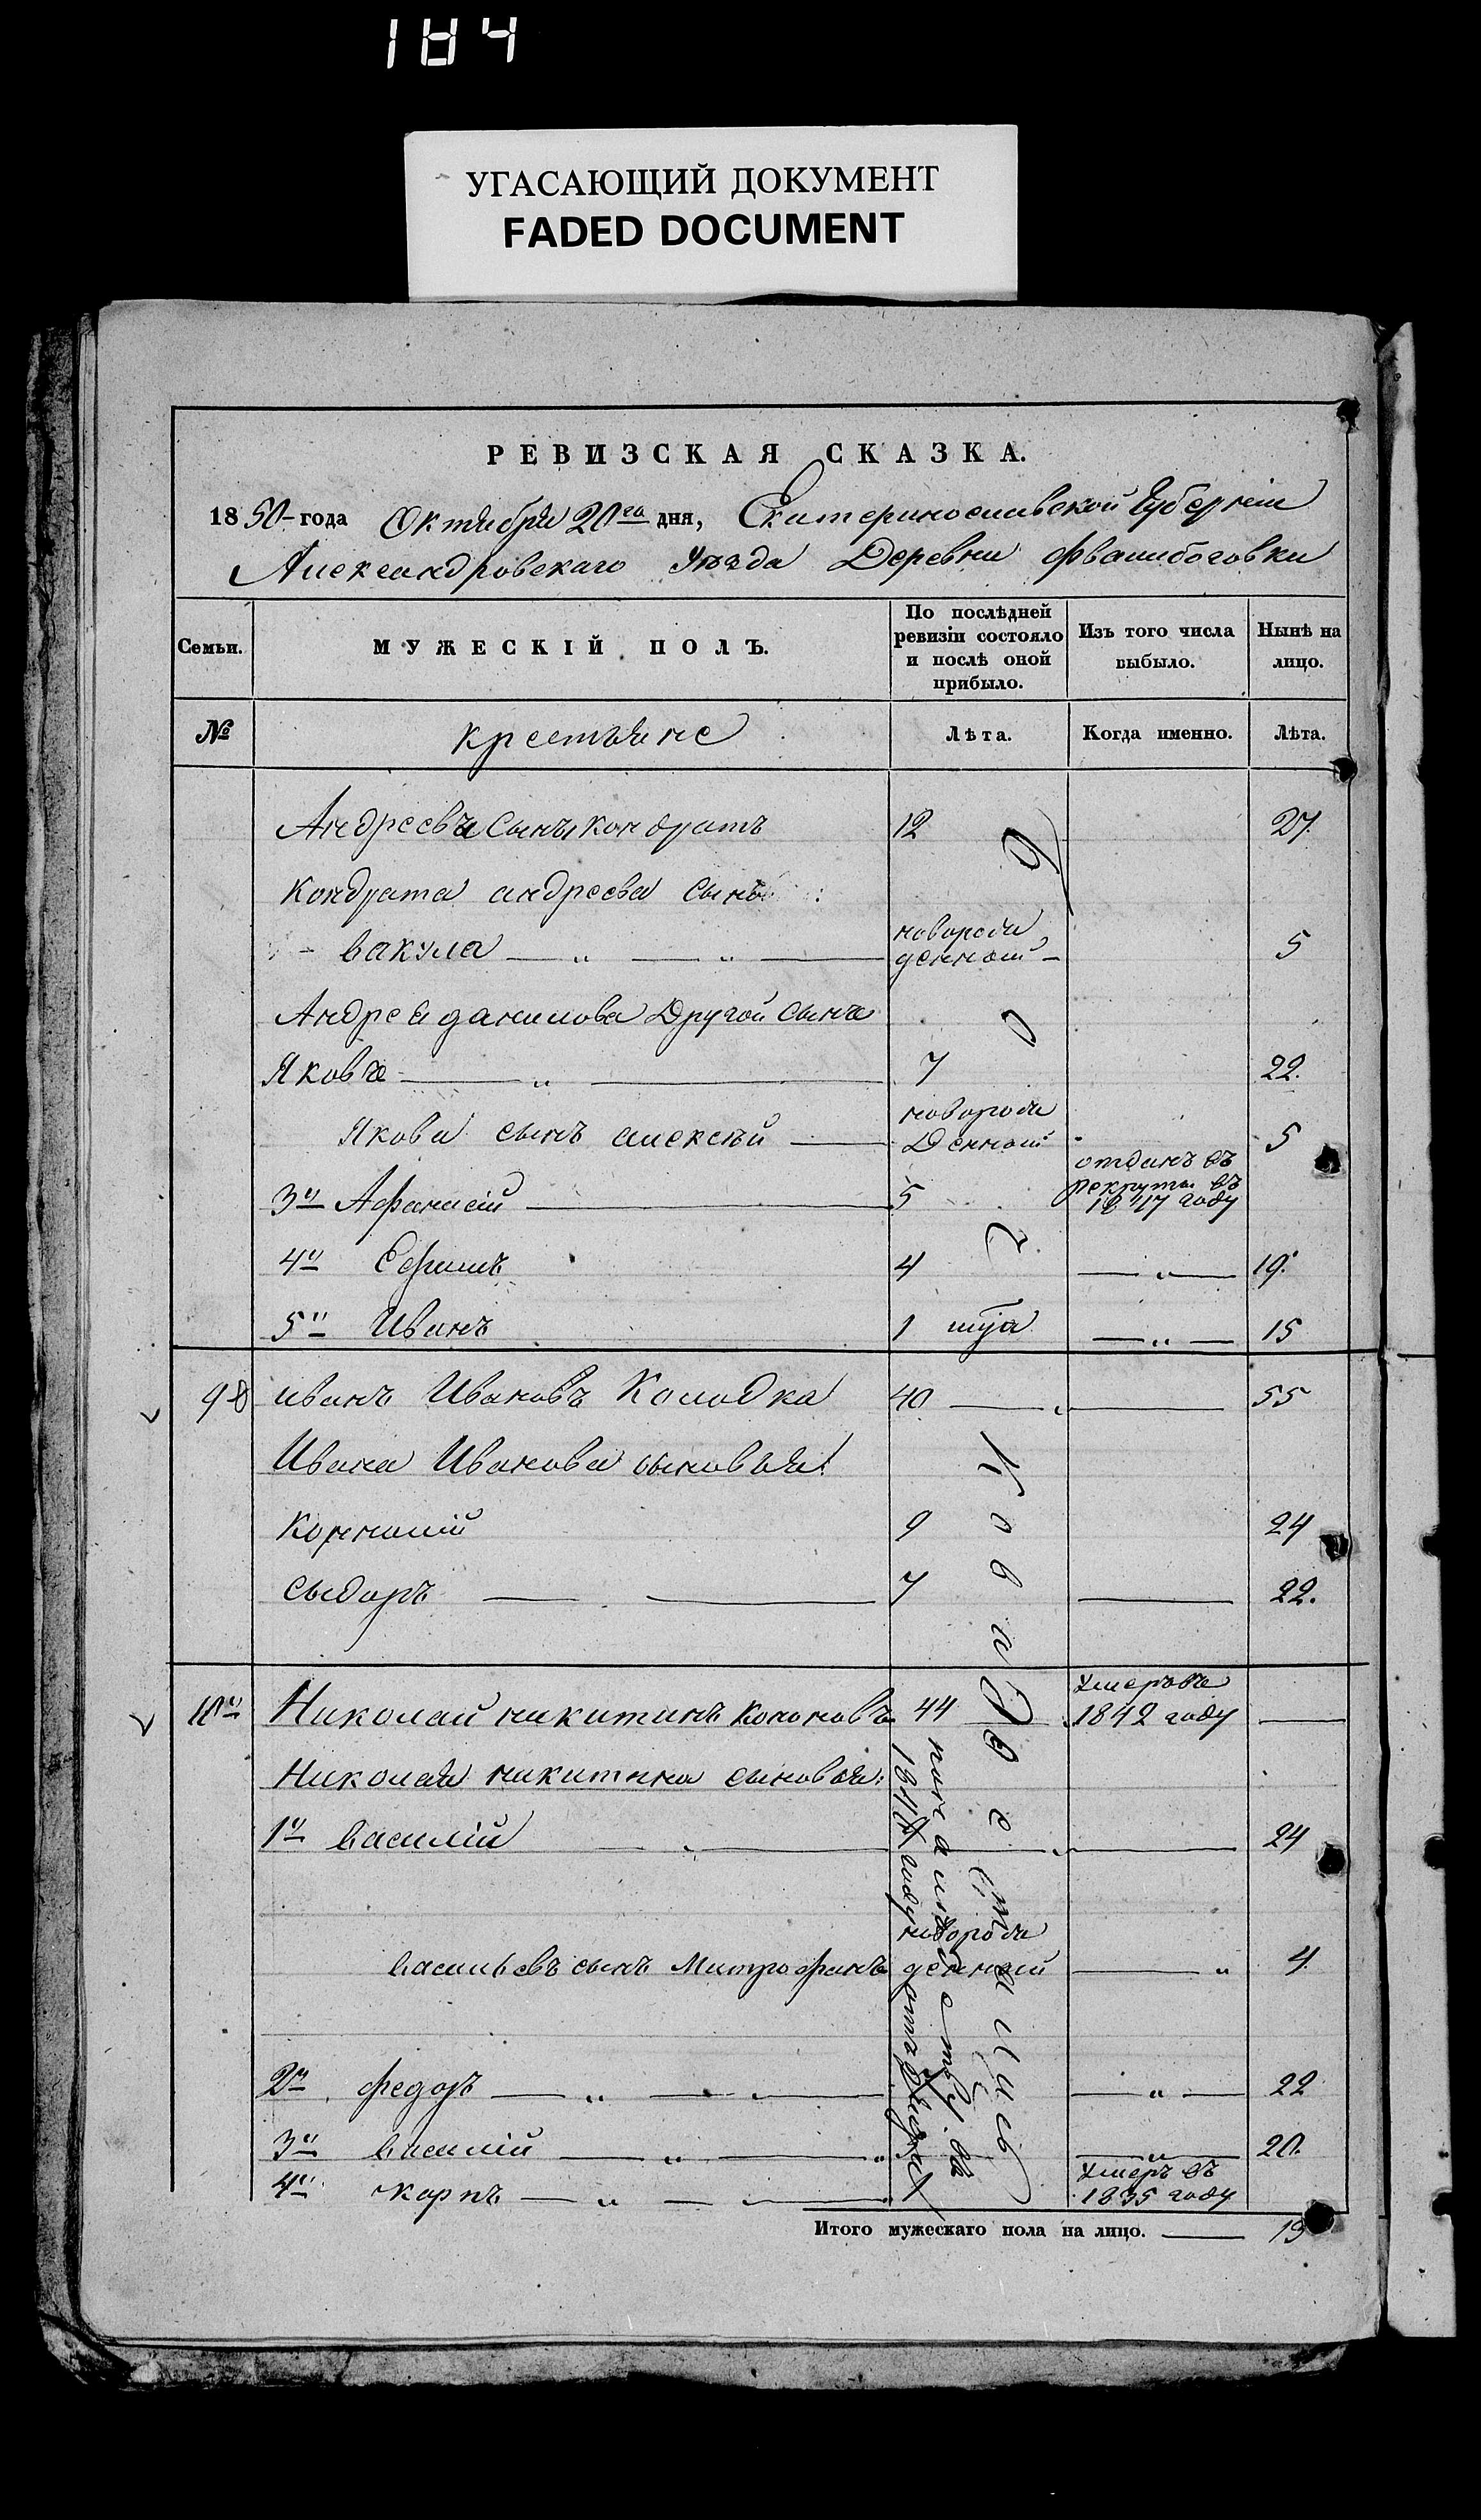 184
УГАСАЮЩИЙ ДОКУМЕНТ
FADED DOCUMENT
РЕВИЗСКАЯ СКАЗКА.
1850 года Октября 20го дня, Екатеринославской Губерніи
Александровскаго Уѣзда Деревни
Семьи.
МУЖЕСКІЙ ПОЛЪ.
По послѣдней ревизіи состояло и послѣ оной прибыло.
Изъ того числа выбыло.
Нынѣ на лицо.
№
крестьяне
Лѣта.
Когда именно.
Лѣта.
Андреевъ Сынъ кондратъ 12 27.
Кондрата андреева сынъ:
вакула новорожденной 5
Андрея данилова Другой сынъ
Яковъ 7 22.
Якова сынъ алексѣй новорожденной 5
3й Афанасій 5 отданъ въ рекруты въ 1847 году
4й Ефимъ 4 19.
5й Иванъ 1 15
98 иванъ Ивановъ Колодка 40 55
Ивана Иванова сыновья:
Корнилій 9 24
сыдоръ 7 22.
Николай никитинъ кононовъ 44 умеръ въ 1842 году
Николая никитина сыновья:
1й василій 24
васильевъ сынъ Митрофанъ новорожденной 4
2й федоръ 22
3й василій 20.
4й карпъ умеръ въ 1835 году
Итого мужескаго пола на лицо. 13